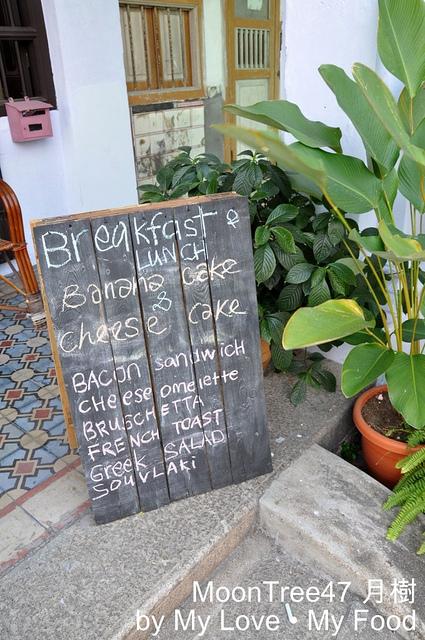 Breakfast &
LUNCH
Banana cake
&
cheese cake
BACON sandwich
cheese omelette
BRUSCHETTA
FRENCH TOAST
Greek SALAD
SOUVLAKi
MoonTree47 月樹
by My Love • My Food